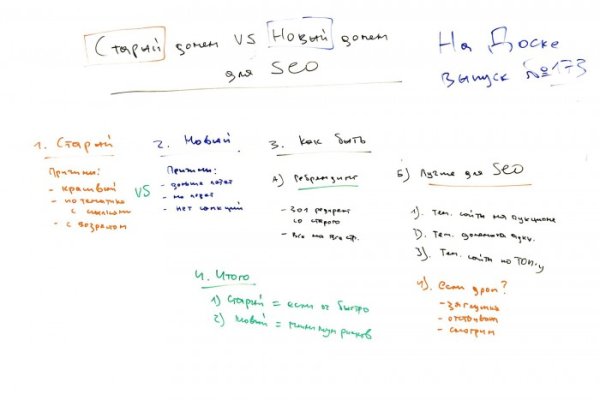 Старый домен VS Новый домен
для SEO
На Доске
выпуск №173
1. Старый
Причины:
- красивый
- по тематике
с ссылками
- с возрастом
VS
2. Новый
Причины:
- дольше
- не
- нет санкций
3. Как быть
А) Ребрендинг
- 301 редирект
со старого
- Все на все стр.
Б) Лучше для SEO
1). Тем. сайты на аукционе
2). Тем. домены аукц.
3). Тем. сайты по ТОП-у
4). если дроп?
- загрузка
- отстаиваем
- смотрим
4. Итого
1) Старый = если оч быстро
2) Новый = минимум рисков